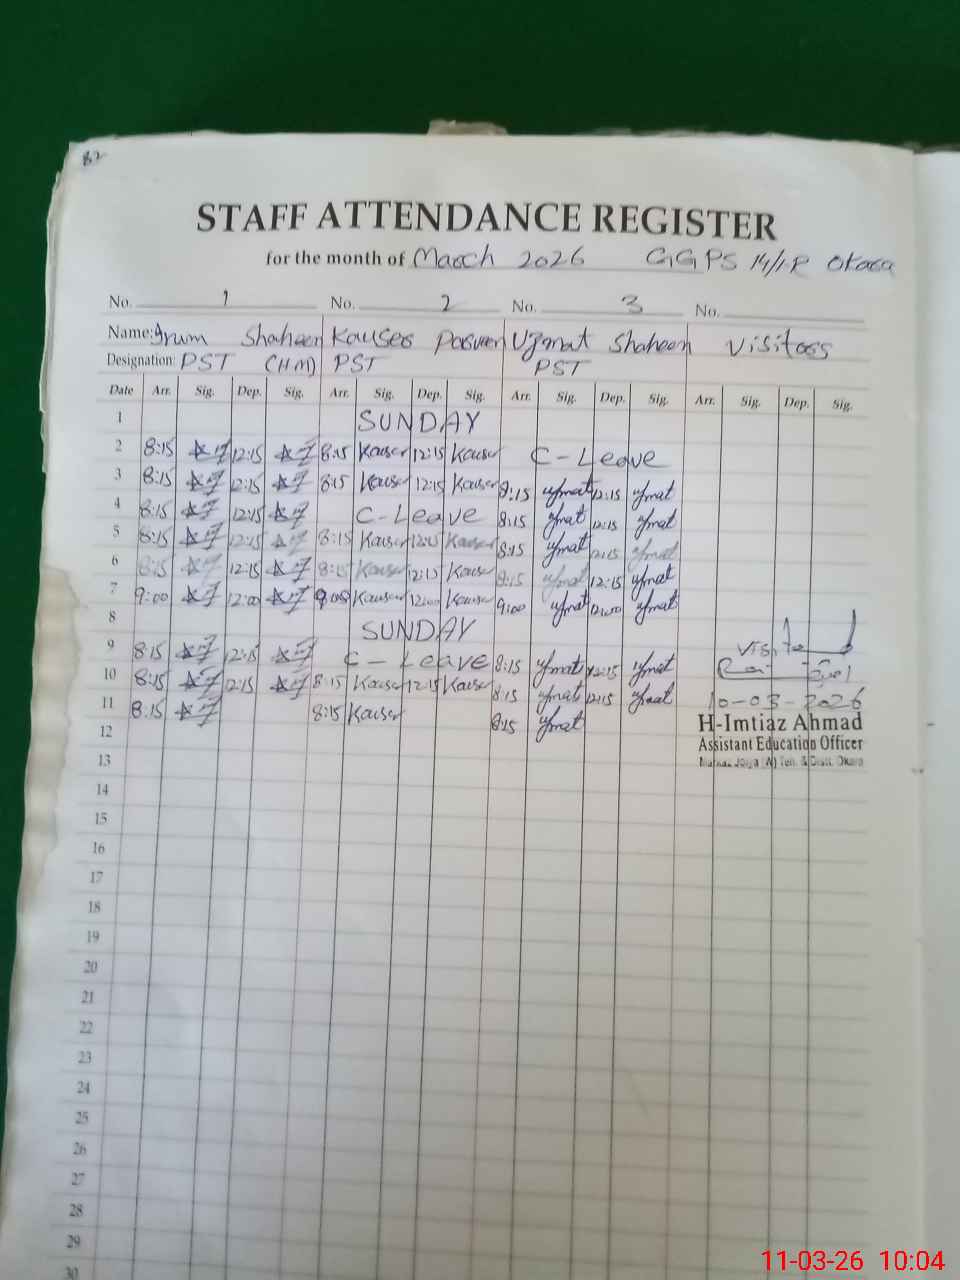 82
STAFF ATTENDANCE REGISTER
for the month of March 2026 GGPS 14/1-R Okara
No. 1 No. 2 No. 3 No.
Name: Irum Shaheen Kauser Parveen Uzmat Shaheen Visitors
Designation: PST (HM) PST PST
Date Arr. Sig. Dep. Sig. Arr. Sig. Dep. Sig. Arr. Sig. Dep. Sig. Arr. Sig. Dep. Sig.
1 SUNDAY
2 8:15 12:15 8:15 Kauser 12:15 Kauser C-Leave
3 8:15 12:15 8:15 Kauser 12:15 Kauser 8:15 uzmat 12:15 uzmat
4 8:15 12:15 C-Leave 8:15 uzmat 12:15 uzmat
5 8:15 12:15 8:15 Kauser 12:15 Kauser 8:15 uzmat 12:15 uzmat
6 8:15 12:15 8:15 Kauser 12:15 Kauser 8:15 uzmat 12:15 uzmat
7 9:00 12:00 9:00 Kauser 12:00 Kauser 9:00 uzmat 12:00 uzmat
8 SUNDAY
9 8:15 12:15 C-Leave 8:15 uzmat 12:15 uzmat
10 8:15 12:15 8:15 Kauser 12:15 Kauser 8:15 uzmat 12:15 uzmat
11 8:15 8:15 Kauser 8:15 uzmat
10-03-2026
12 H-Imtiaz Ahmad
Assistant Education Officer
13
14
15
16
17
18
19
20
21
22
23
24
25
26
27
28
29
30
11-03-26 10:04